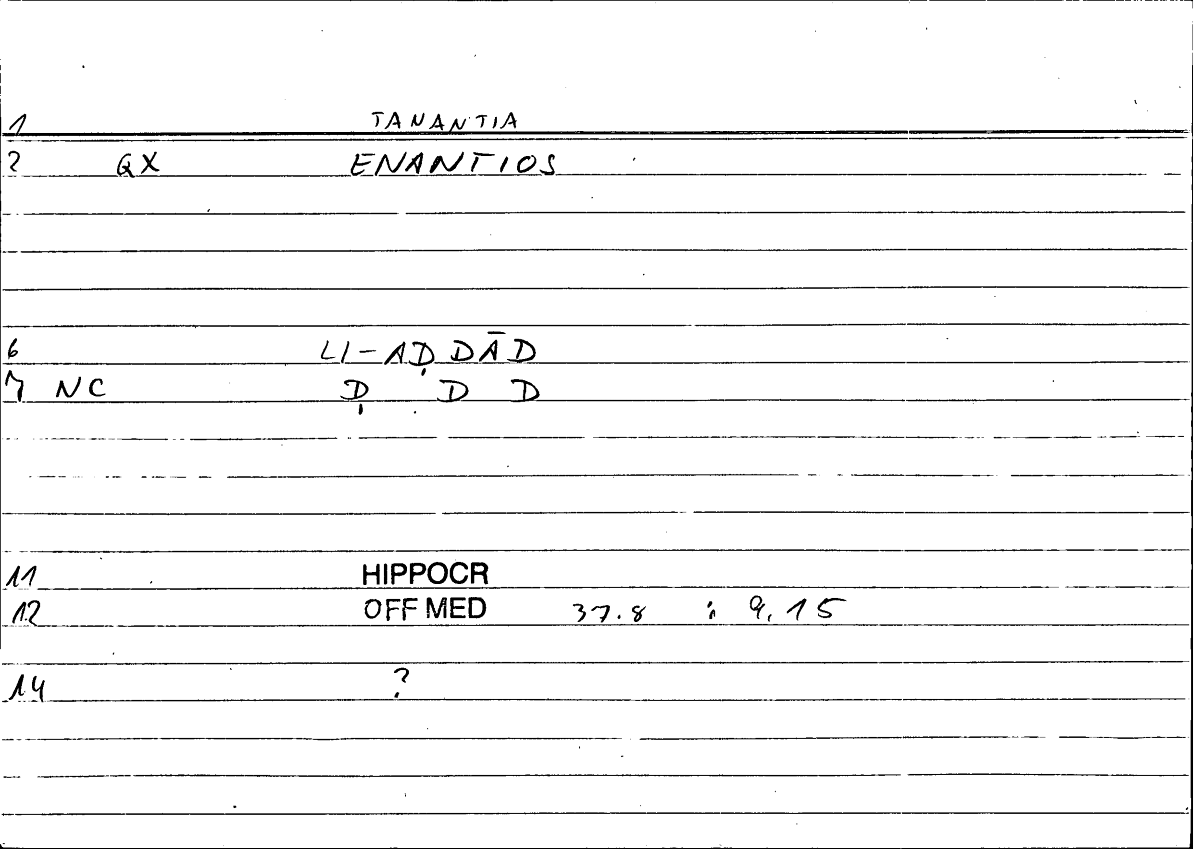 1 TANANTIA
2 GX ENANTIOS
6 LI-AḌDĀD
7 NC Ḍ D D
11 HIPPOCR
12 OFF MED 37.8 : 9,15
14 ?